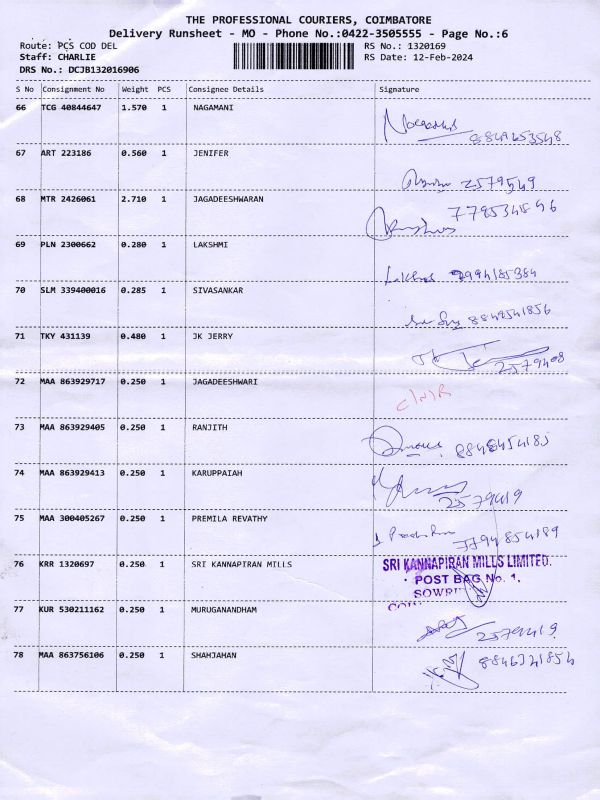 THE PROFESSIONAL COURIERS, COIMBATORE
Delivery Runsheet - MO - Phone No.:0422-3505555 - Page No.:6
Route: PCS COD DEL RS No.: 1320169
Staff: CHARLIE RS Date: 12-Feb-2024
DRS No.: DCJB132016906
S No Consignment No Weight PCS Consignee Details Signature
66 TCG 40844647 1.570 1 NAGAMANI
67 ART 223186 0.560 1 JENIFER
2579549
68 MTR 2426061 2.710 1 JAGADEESHWARAN
69 PLN 2300662 0.280 1 LAKSHMI
7994185384
70 SLM 339400016 0.285 1 SIVASANKAR
8848541856
71 TKY 431139 0.480 1 JK JERRY
72 MAA 863929717 0.250 1 JAGADEESHWARI
73 MAA 863929405 0.250 1 RANJITH
74 MAA 863929413 0.250 1 KARUPPAIAH
2579419
75 MAA 300405267 0.250 1 PREMILA REVATHY
7794854189
76 KRR 1320697 0.250 1 SRI KANNAPIRAN MILLS SRI KANNAPIRAN MILLS LIMITED.
POST BAG No. 1,
77 KUR 530211162 0.250 1 MURUGANANDHAM
2579419
78 MAA 863756106 0.250 1 SHAHJAHAN